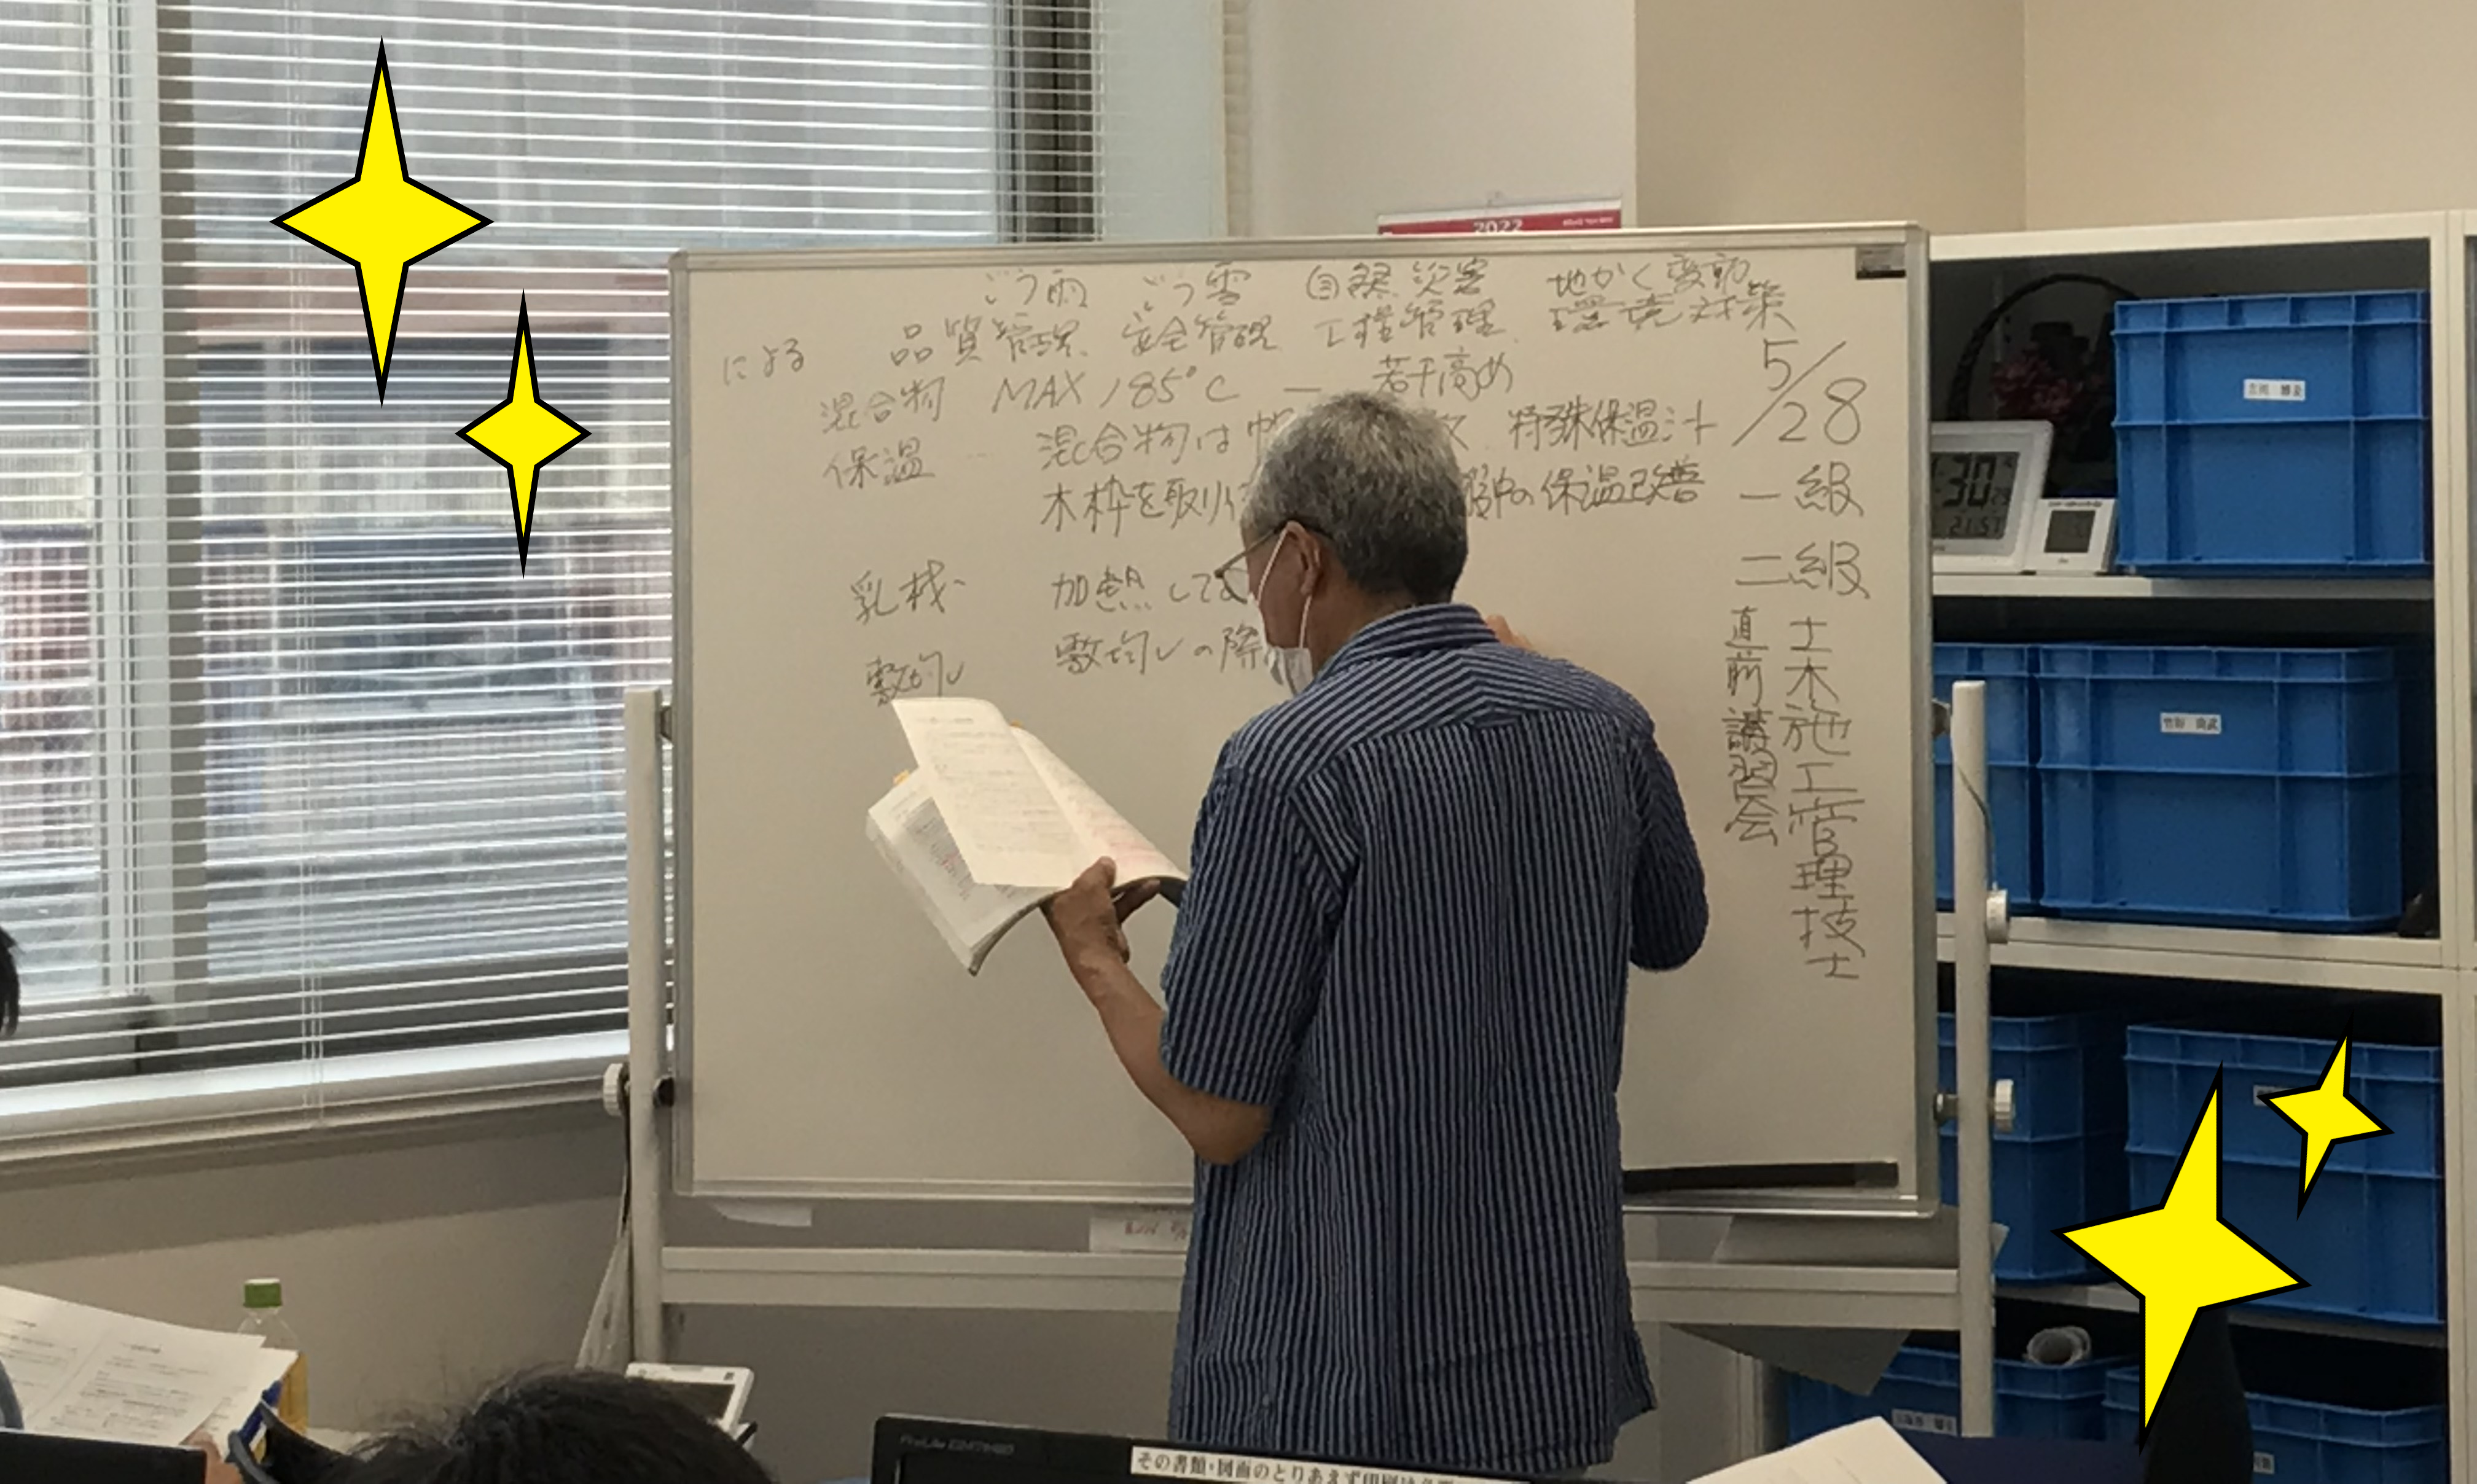 2022
ごう雨 ごう雪 自然災害 地かく変動
による 品質管理、安全管理、工程管理、環境対策
混合物 MAX 185°C ー 若干高め
保温 混合物は 特殊保温シート
木枠を取り 保温改善
乳材 加熱して
敷均し 敷均しの際
5/28
一級
二級
土木施工管理技士
直前講習会
:30
21.57
ProLite
その書類・図面のとりあえず印刷は